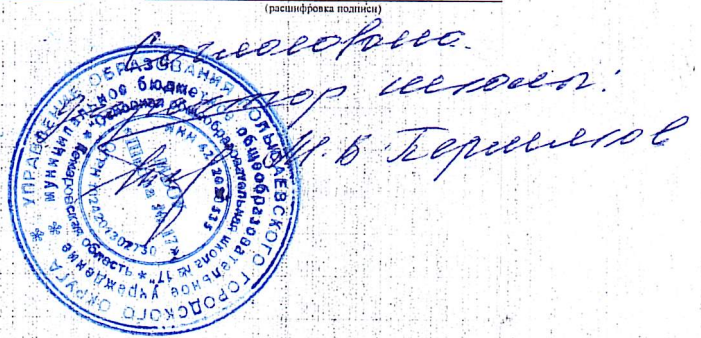 (расшифровка подписи)
Согласовано.
Директор школы:
М.В. Пермяков
УПРАВЛЕНИЕ ОБРАЗОВАНИЯ ПОЛЫСАЕВСКОГО ГОРОДСКОГО ОКРУГА
муниципальное бюджетное общеобразовательное учреждение
"Основная общеобразовательная школа № 17" * Кемеровская область *